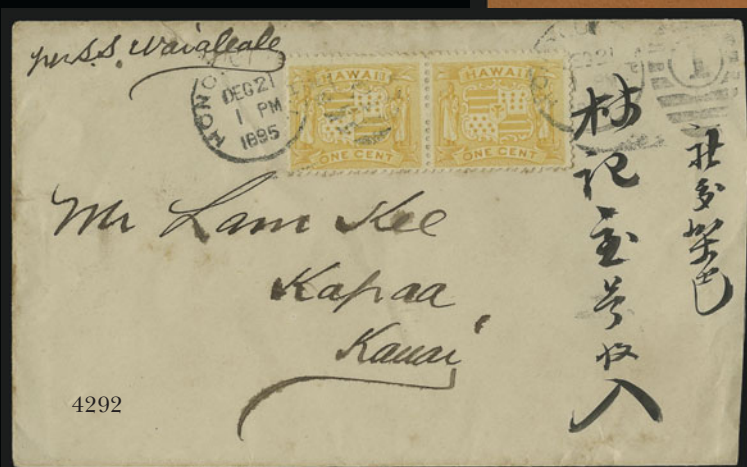 per S.S. Waialeale
HONO
DEC 21
1 PM
1895
HAWAII
ONE CENT
HAWAII
ONE CENT
1
Mr Lam Kee
Kapaa
Kauai
林記宝号收入
4292